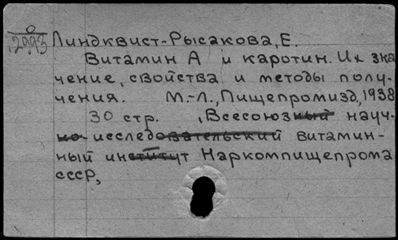 2993 Линдквист-Рысакова, Е.
Витамин А и каротин. Их зна
чение, свойства и методы полу-
чения. М.-Л., Пищепромизд, 1938
30 стр. , Всесоюзный науч-
но исследовательский витамин-
ный институт Наркомпищепрома
СССР,